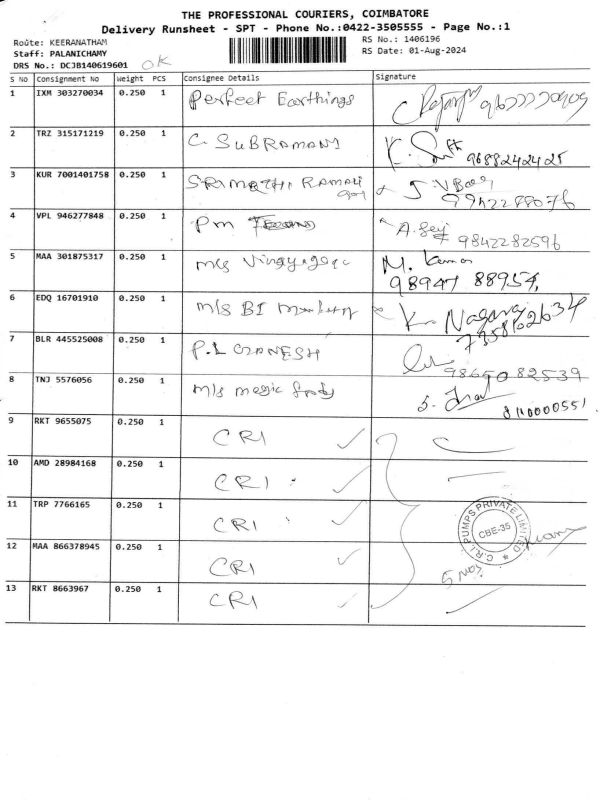 THE PROFESSIONAL COURIERS, COIMBATORE
Delivery Runsheet - SPT - Phone No.:0422-3505555 - Page No.:1
Route: KEERANATHAM
RS No.: 1406196
Staff: PALANICHAMY
RS Date: 01-Aug-2024
DRS No.: DCJB140619601 OK
S No Consignment No Weight PCS Consignee Details Signature
1 IXM 303270034 0.250 1 Perfect Earthings
2 TRZ 315171219 0.250 1 C. SUBRAMANI K. 9688242425
3 KUR 7001401758 0.250 1 SRIMATHI RAMANI 9942288076
4 VPL 946277848 0.250 1 PM 9842282596
5 MAA 301875317 0.250 1 M/s M. 98947 88954,
6 EDQ 16701910 0.250 1 M/s BI K. Nagaraj
7 BLR 445525008 0.250 1 P.L GANESH 9865082539
8 TNJ 5576056 0.250 1 M/s magic S. 8110000551
9 RKT 9655075 0.250 1 CRI ✓
10 AMD 28984168 0.250 1 CRI ✓
11 TRP 7766165 0.250 1 CRI ✓
12 MAA 866378945 0.250 1 CRI ✓
13 RKT 8663967 0.250 1 CRI ✓
C.R.I. PUMPS PRIVATE LIMITED
CBE-35
5 nos